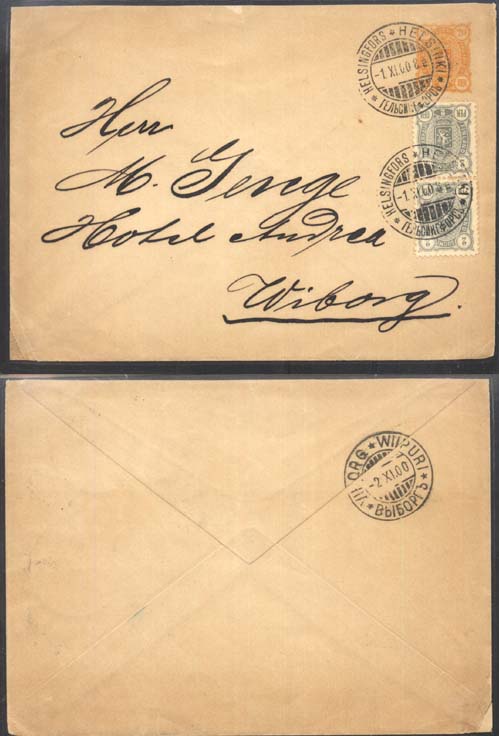 HELSINGFORS * HELSINKI *
-1.XI.00
ГЕЛЬСИНГФОРСЪ
PEN
HELSINGFORS * HE
-1.XI.00
ГЕЛЬСИНГФОРСЪ
2 2
Herr
M. Genge
Hotel Andrea
Wiborg.
ORG * WIIPURI *
-2.XI.00
ВЫБОРГЪ